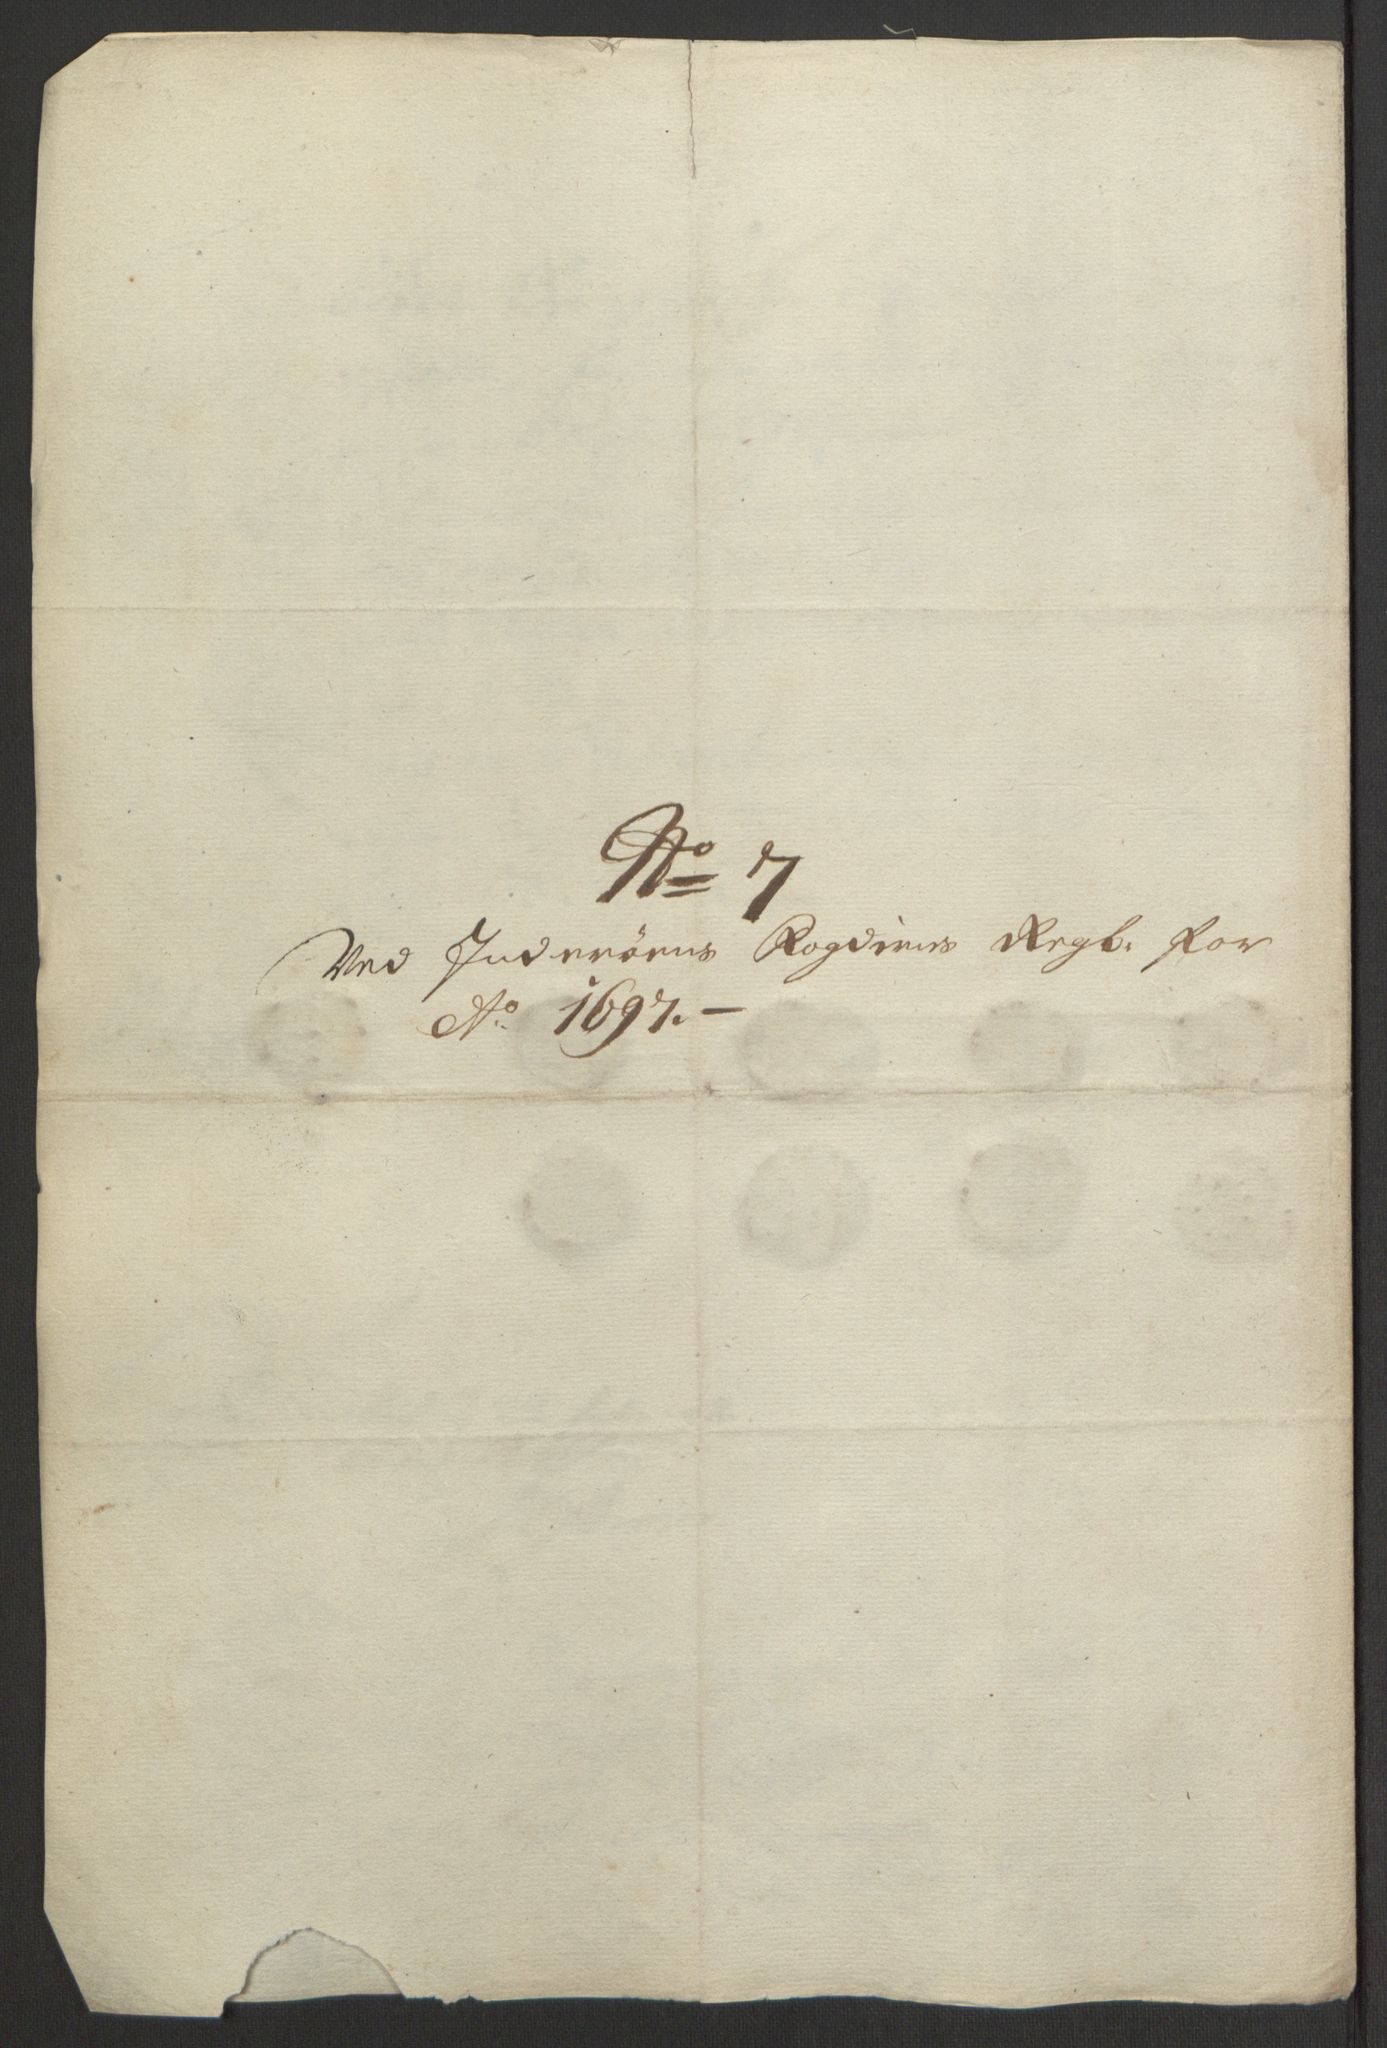 No 7
Ved Inderöens Fogderies Regb. for
Ao 1697.-